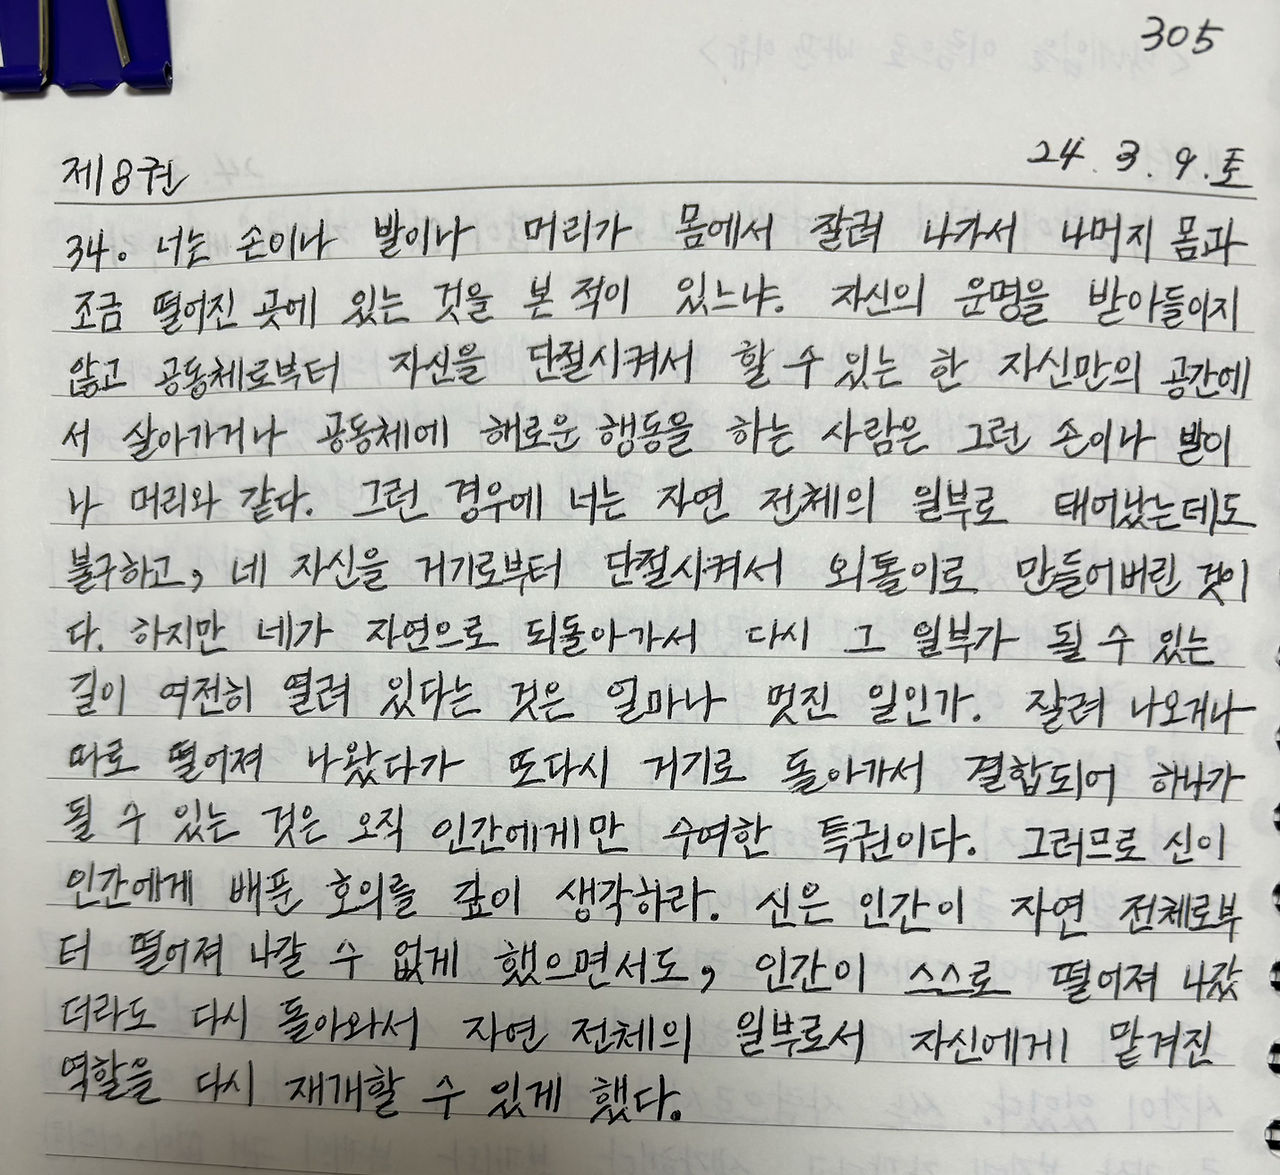 305
제8권
24. 3. 9. 토
34. 너는 손이나 발이나 머리가 몸에서 잘려 나가서 나머지 몸과
조금 떨어진 곳에 있는 것을 본 적이 있느냐. 자신의 운명을 받아들이지
않고 공동체로부터 자신을 단절시켜서 할 수 있는 한 자신만의 공간에
서 살아가거나 공동체에 해로운 행동을 하는 사람은 그런 손이나 발이
나 머리와 같다. 그런 경우에 너는 자연 전체의 일부로 태어났는데도
불구하고, 네 자신을 거기로부터 단절시켜서 외톨이로 만들어버린 것이
다. 하지만 네가 자연으로 되돌아가서 다시 그 일부가 될 수 있는
길이 여전히 열려 있다는 것은 얼마나 멋진 일인가. 잘려 나오거나
따로 떨어져 나왔다가 또다시 거기로 돌아가서 결합되어 하나가
될 수 있는 것은 오직 인간에게만 수여한 특권이다. 그러므로 신이
인간에게 배푼 호의를 깊이 생각하라. 신은 인간이 자연 전체로부
터 떨어져 나갈 수 없게 했으면서도, 인간이 스스로 떨어져 나갔
더라도 다시 돌아와서 자연 전체의 일부로서 자신에게 맡겨진
역할을 다시 재개할 수 있게 했다.